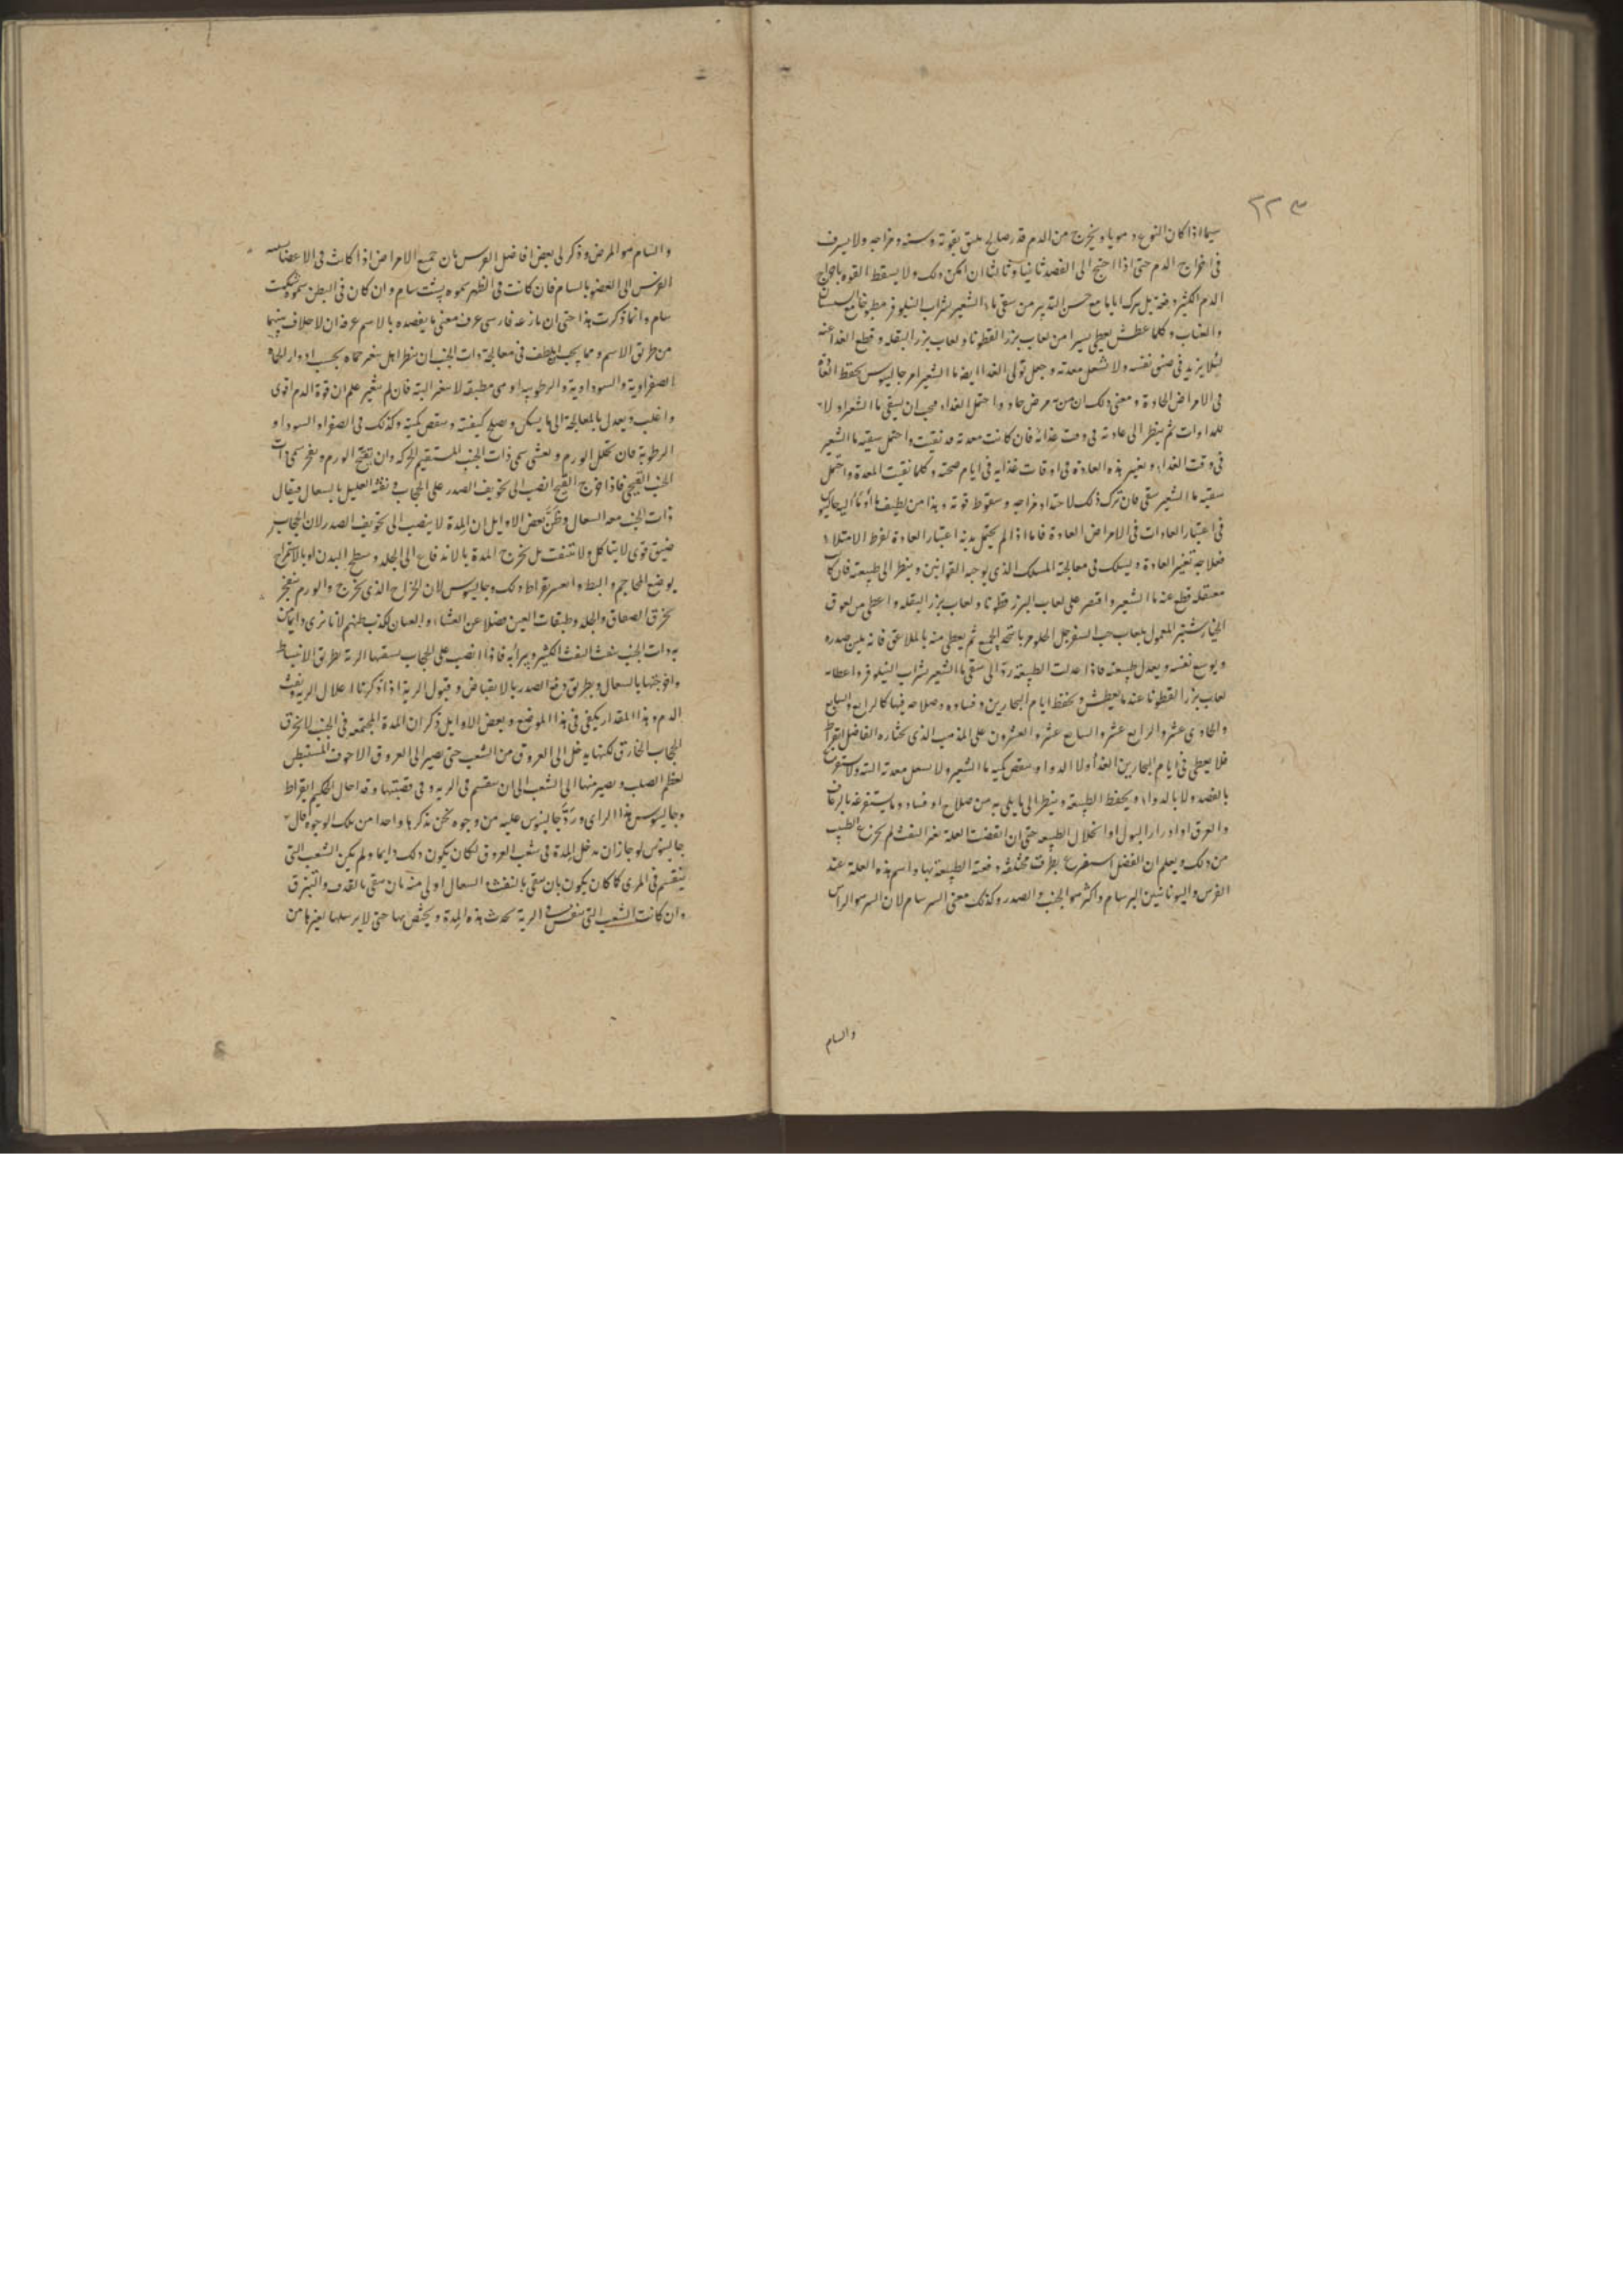 ٣٢٣
سيما اذا كان النوع دمويا ويخرج من الدم قدر صالح يليق بقوته وسنه ومزاجه ولا يسرف
فى اخراج الدم حتى اذا احتج الى الفصد ثانيا وثالثا ان امكن ذلك ولا يسقط القوه باخراج
الدم الكثير دفعة بل يترك اياما مع حسن التدبير من سقى ماء الشعير بشراب النيلوفر مطبوخا مع السبستان
والعناب وكلما عطش يعطى يسيرا من لعاب بزر القطونا ولعاب بزر البقله وقطع الغذا عنه
لئلا يزيد فى ضيق نفسه ولا تشغل معدته وجعل تولى الغذا ايضا ماء الشعير امر جالينوس بحفظ العادة
فى الامراض الحادة ومعنى ذلك ان من مرض حاد واحتمل الغذاء فيجب ان يسقى ماء الشعير اولا
للمداوات ثم ينظر الى عادته فى وقت غذائه فان كانت معدته قد نقيت واحتمل سقيه ماء الشعير
فى وقت الغذاء ويغير هذه العادة فى اوقات غذايه فى ايام صحته وكلما نقيت المعدة واحتمل
سقيه ماء الشعير سقى فان ترك ذلك لاحتداد مزاجه وسقوط قوته وهذا من لطيف ما أومأ اليه جالينوس
فى اعتبار العادات فى الامراض الحادة فاما اذا لم يحتمل بدنه اعتبار العادة لفرط الامتلاء
فعلاجه تغير العادة ويسلك فى معالجته المسلك الذى يوجبه القوانين وينظر الى طبيعته فان كانت
معتقله قطع عنه ماء الشعير واقتصر على لعاب البزر قطونا ولعاب بزر البقله واعطى من لعوق
الخيار شنبر المعمول بلعاب حب السفرجل الحلو مر باتحد الجميع ثم يعطى منه بالملاعق فانه يلين صدره
ويوسع نفسه ويعدل طبيعته فاذا عدلت الطبيعة ردّ الى سقى ماء الشعير بشراب النيلوفر واعطاه
لعاب بزر القطونا عند ما يعطش ويحفظ ايام البحارين وفساده وصلاحه فيها كالرابع والسابع
والحادى عشر والرابع عشر والسابع عشر والعشرون على المذهب الذى يختاره الفاضل ابقراط
فلا يعطى فى ايام البحارين الغذأ ولا الدوا وينقص كمية ماء الشعير ولا يشغل معدته البته ولا يستفرغ
بالفصد ولا بالدواء ويحفظ الطبيعه وينظر الى ما يلى به من صلاح او فساد وما يستفرغه بالرعاف
والعرق او ادرار البول او انحلال الطبيعه حتى ان انقضت العلة بغير النفث لم يجزع الطبيب
من ذلك ويعلم ان الفضل استفرغ بطرق مختلفة دفعته الطبيعة بها واسم هذه العلة عند
الفرس واليونانيين البرسام واكثر هو الجنب والصدر وكذلك معنى السرسام لان السر هو الراس
والسام
والسام هو المرض وذكر لى بعض افاضل الفرس بان جميع الامراض اذا كانت فى الاعضا ينسبه
الفرس الى العضو بالسام فان كانت فى الظهر سموه پشت سام وان كان فى البطن سموه شكمت
سام وانما ذكرت هذا حتى ان نازعه فارسى عرف معنى ما يقصده بالاسم عرفه ان لا خلاف بينهما
من طريق الاسم ومما يجب ان يلطف فى معالجة ذات الجنب ان ينظر اهل تتغير حماه بحسب ادوار الحما
الصفراوية والسوداوية والرطوبية او هى مطبقه لا تتغير البته فان لم تتغير علم ان قوة الدم اقوى
واغلب ويعدل بالمعالجة الى ما يسكن ويصلح كيفيته وينقص كميته وكذلك فى الصفراء والسودا و
الرطوبة فان تحلل الورم ويعشى سمى ذات الجنب المستقيم الحركه وان تقيح الورم وينفجر سمى ذات
الجنب القيحى فاذا خرج القيح انصب الى تجويف الصدر على الحجاب ونفثه العليل بالسعال فيقال
ذات الجنب معه السعال وظنّ بعض الاوايل ان المدة لا ينصب الى تجويف الصدر لان الحجاب
ضيق قوى لا يتاكل ولا تنفث بل يخرج المدة بالاندفاع الى الجلد وسطح البدن او بالاستخراج
بوضع المحاجم والبط وانتصر بقراط ذلك وجالينوس لان الخراج الذى يخرج والورم ينفجر
يخرق الصفاق والجلد وطبقات العين فضلا عن الغشاء والعيان يكذب ظنهم لانا نرى دايما من
به ذات الجنب ينفث النفث الكثير ويبرأ به فاذا انصب على الحجاب يسفها الرية بطريق الانبساط
واخرجتها بالسعال وبطريق دفع الصدر بالانقباض وقبول الرية اذا ذكرنا اعلال الرية ونفث
الدم وهذا المقدار يكفى فى هذا الموضع وبعض الاوايل ذكر ان المدة المجتمعه فى الجنب لا يخرق
الحجاب الخارق لكنها يدخل الى العروق من الشعب حتى يصير الى العروق الاجوف المستبطن
لعظم الصلب ويصير منها الى الشعب الى ان ينقسم فى الرية وفى قصبتها وقد احال الحكيم ابقراط
وجالينوس هذا الراى وردّ جالينوس عليه من وجوه نحن نذكر ها واحدا من تلك الوجوه قال
جالينوس لو جاز ان يدخل المدة فى شعب العروق لكان يكون ذلك دايما ولم يكن الشعب التى
ينقسم فى المرى كما كان يكون بان ينقى بالنفث السعال اولى منه بان ينقى بالقذف والتبزق
وان كانت الشعب التى ينقسم فى الرية تحدث هذه المدة ويختص بها حتى لا يرسلها لغيرها من